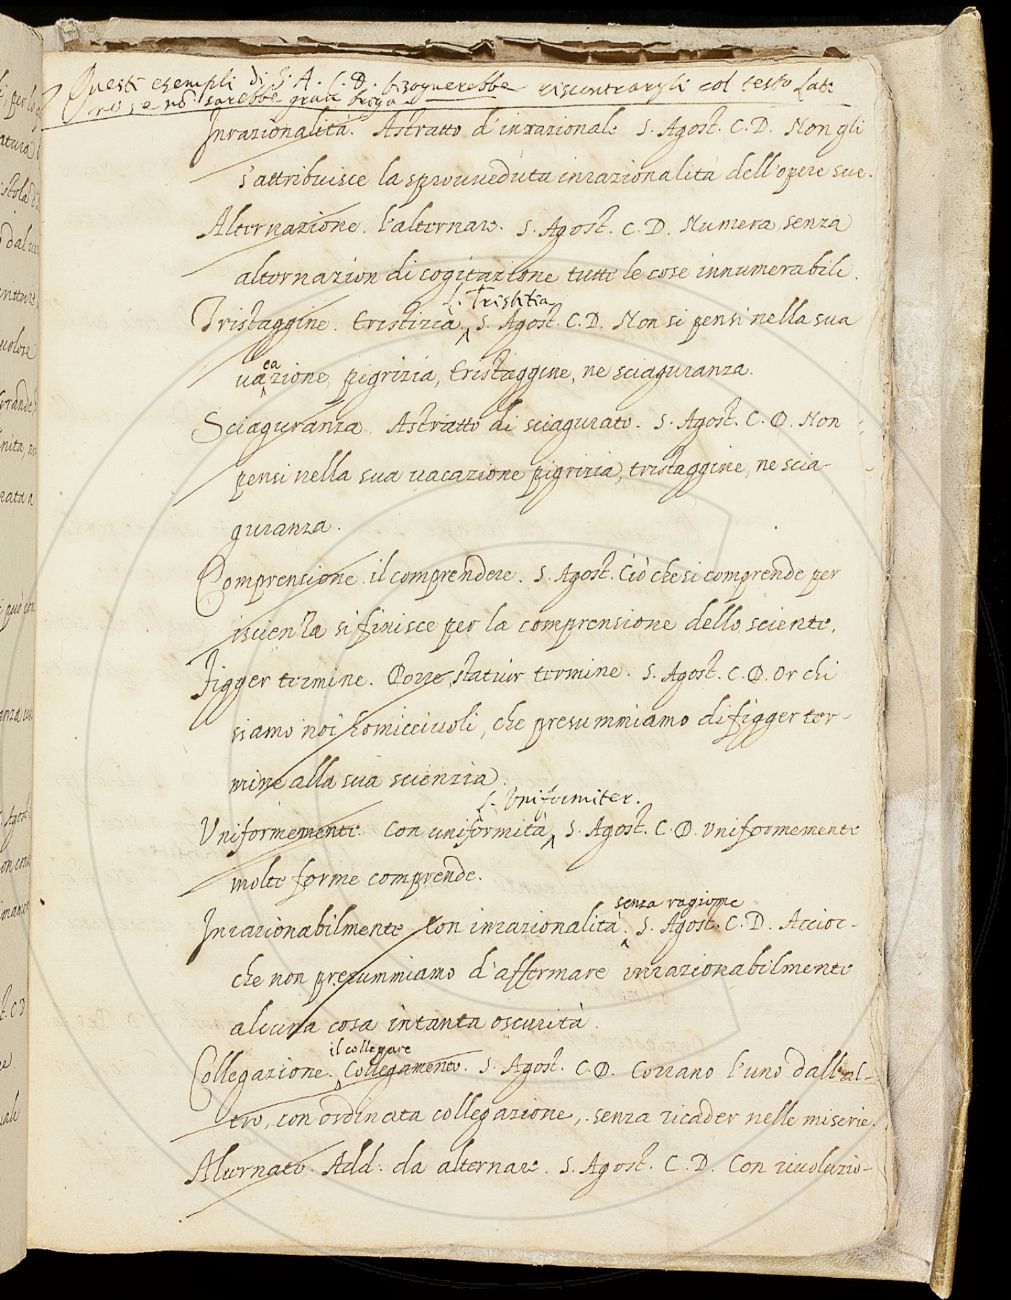 Questi esempli di S. A. C. D. bisognerebbe riscontrargli col testo Lat:
no, se nò sarebbe gran briga
Inrazionalità. Astratto d'inrazionale S. Agost. C. D. Non gli
s'attribuisce la sprovveduta inrazionalità dell'opere sue.
Alternazione. l'alternare. S. Agost. C. D. Numera senza
alternazion di cogitazione tutte le cose innumerabili.
L. Tristitia
Tristaggine. Tristizia S. Agost. C. D. Non si pensi nella sua
ca
vazione, pigrizia, tristaggine, ne sciaguranza.
Sciaguranza. Astratto di sciagurato. S. Agost. C. D. Non
pensi nella sua vacazione pigrizia, tristaggine, ne scia-
guranza.
Comprensione. il comprendere. S. Agost. Ciò che si comprende per
iscienza si finisce per la comprensione dello sciente.
Figger termine. Porre, statuir termine. S. Agost. C. D. Or chi
siamo noi homiccivoli, che presummiamo di figger ter-
mine alla sua scienzia.
L. Uniformiter.
Uniformemente. Con uniformità, S. Agost. C. D. Uniformemente
molte forme comprende.
senza ragione
Inrazionabilmente. Con inrazionalità. S. Agost. C. D. Accioc-
che non presummiamo d'affermare inrazionabilmente
alcuna cosa in tanta oscurità.
il collegare
Collegazione. Collegamento. S. Agost. C. D. Corrano l'uno dall'al-
tro, con ordinata collegazione, senza ricader nelle miserie.
Alternato. Add. da alternare. S. Agost. C. D. Con rivoluzio-